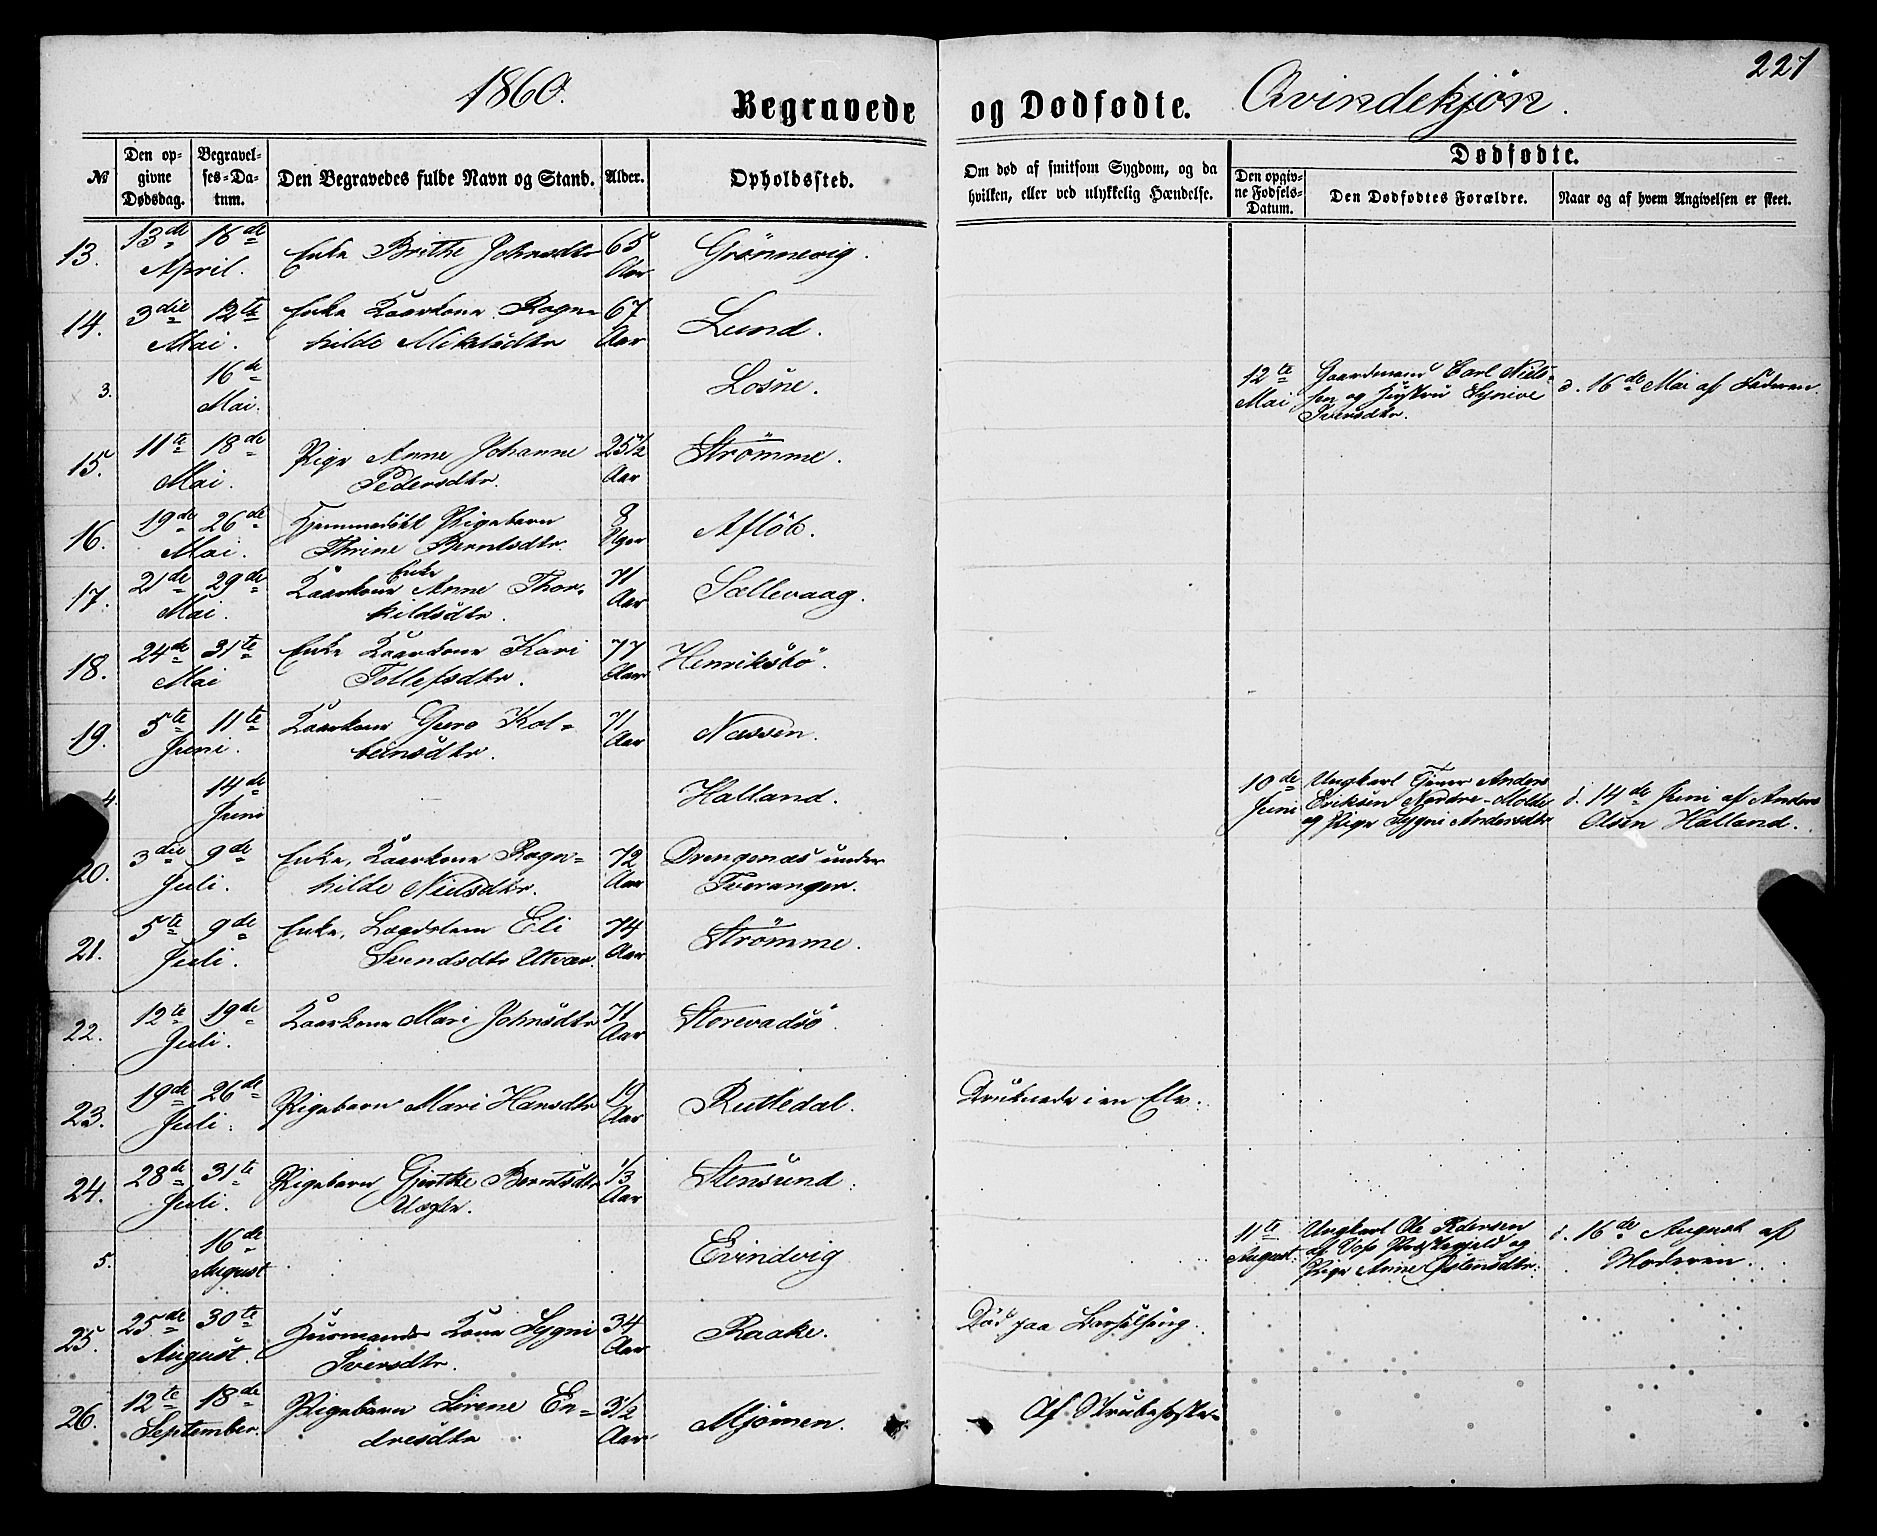 221
1860.
Begravede og Dødfødte. Qvindekjøn.
№
Den opgivne Dødsdag.
Begravelses-Datum.
Den Begravedes fulde Navn og Stand.
Alder.
Opholdssted.
Om død af smitsom Sygdom, og da hvilken, eller ved ulykkelig Hændelse.
Dødfødte.
Den opgivne Fødsels-Datum.
Den Dødfødtes Forældre.
Naar og af hvem Angivelsen er skeet.
13. 13de 16de Enke Brithe Johnsdtr 65 Grønnevig.
April. Aar
14. 3die 12te Enke Kaarkone Ragn= 67 Lund.
Mai. hilde Mikkelsdtr Aar
3. 16de Losne. 12te Gaardmand Carl Niel= d. 16de Mai af Faderen.
Mai. Mai sen og Hustru Synive
Iversdtr.
15. 11te 18de Pige Anne Johanne 25½ Strømme.
Mai. Pedersdtr. Aar
16. 19de 26de Hjemmedøbt Pigebarn 8 Afløb.
Mai. Thrine Berntsdtr. Uger
17. 21de 29de Kaarkone Enke Anne Thor= 71 Sellevaag.
Mai. kildsdtr. Aar
18. 24de 31te Enke Kaarkone Kari 77 Henriksbø.
Mai Tollefsdtr. Aar
19. 5te 11te Kaarkone Guro Kol= 71 Næssen.
Juni. beinsdtr. Aar
4. 14de Halland. 10de Ungkarl Tjener Anders d. 14de Juni af Anders
Juni Juni Eriksen Nordre-Molde Olsen Halland.
og Pige Sygni Andersdtr
20. 3die 9de Enke, Kaarkone Ragn= 72 Drengenæs under
Juli. hilde Nielsdtr. Aar Tveranger.
21. 5te 9de Enke, Lægdslem Eli 74 Strømme.
Juli. Svendsdtr Utvær. Aar
22. 12te 19de Kaarkone Mari Johnsdtr 71 Storevadsø.
Juli. Aar
23. 19de 26de Pigebarn Mari Hansdtr Rutledal. Druknede i en Elv.
Juli. Aar
24. 28de 31te Pigebarn Gjertke Berntsdtr 1/3 Stensund.
Juli. Uægte. Aar
5. 16de Evindvig 11te Ungkarl Ole Pedersen d. 16de August af
August August. af Voss Præstegjeld og Moderen.
Pige Anne Østensdtr.
25. 25de 30te Huusmands Kone Sygni 34 Raake. Død paa Barselseng.
August. Iversdtr. Aar
26. 12te 18de Pigebarn Sirene En= 3½ Mjømen. Af Strubehoste.
September. dresdtr Aar